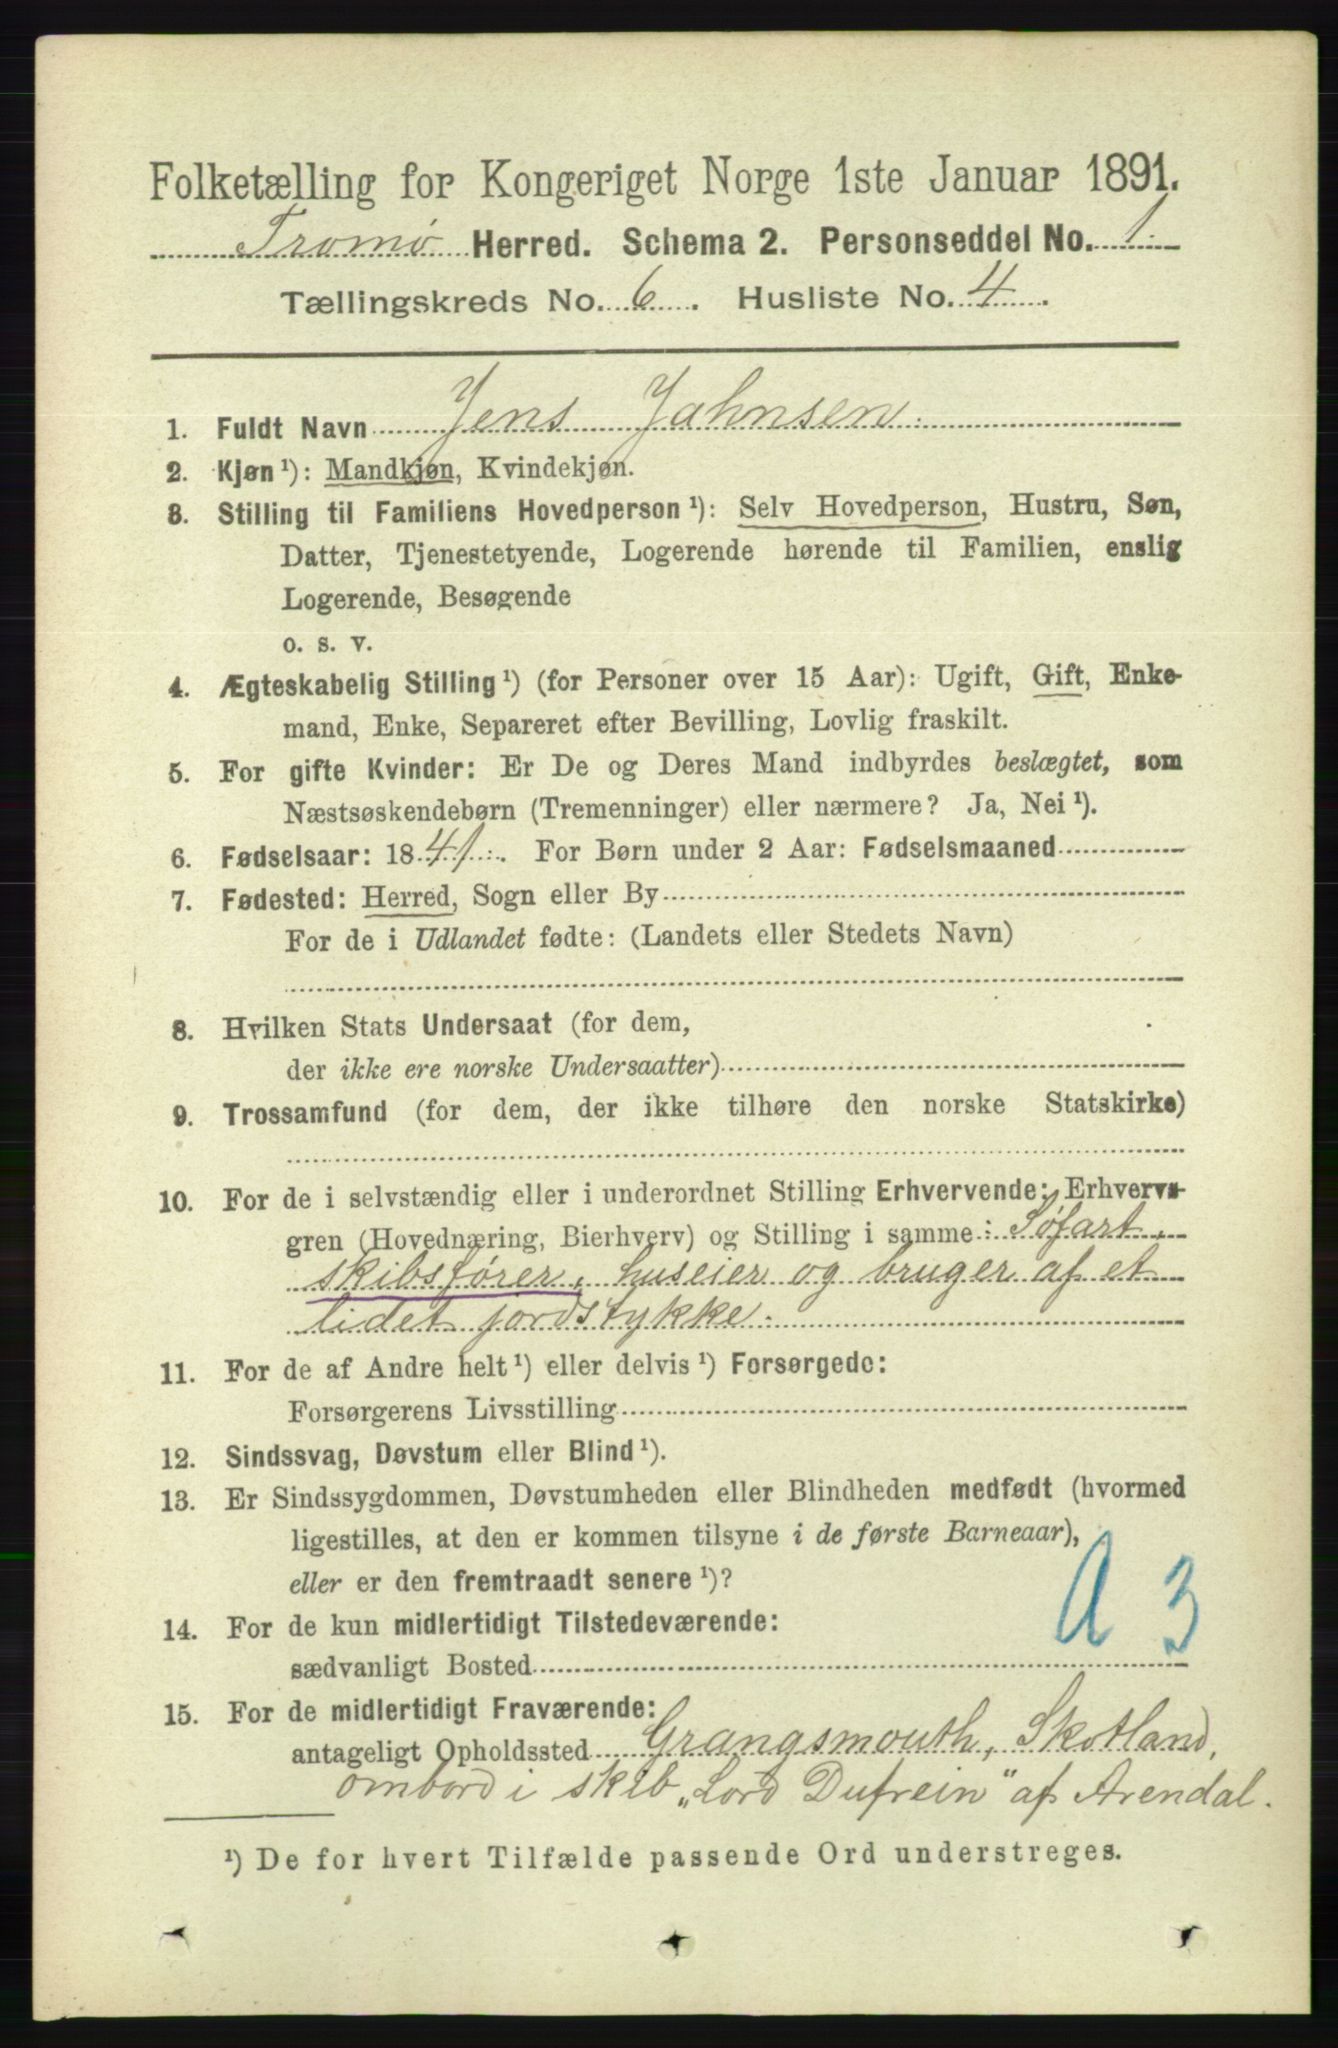 Folketælling for Kongeriget Norge 1ste Januar 1891.
Tromø Herred. Schema 2. Personseddel No. 1.
Tællingskreds No. 6. Husliste No. 4.
1. Fuldt Navn Jens Jahnsen.
2. Kjøn¹): Mandkjøn, Kvindekjøn.
3. Stilling til Familiens Hovedperson¹): Selv Hovedperson, Hustru, Søn,
Datter, Tjenestetyende, Logerende hørende til Familien, enslig
Logerende, Besøgende
o. s. v.
4. Ægteskabelig Stilling¹) (for Personer over 15 Aar): Ugift, Gift, Enke-
mand, Enke, Separeret efter Bevilling, Lovlig fraskilt.
5. For gifte Kvinder: Er De og Deres Mand indbyrdes beslægtet, som
Næstsøskendebørn (Tremenninger) eller nærmere? Ja, Nei¹).
6. Fødselsaar: 1841. For Børn under 2 Aar: Fødselsmaaned
7. Fødested: Herred, Sogn eller By
For de i Udlandet fødte: (Landets eller Stedets Navn)
8. Hvilken Stats Undersaat (for dem,
der ikke ere norske Undersaatter)
9. Trossamfund (for dem, der ikke tilhøre den norske Statskirke)
10. For de i selvstændig eller i underordnet Stilling Erhvervende: Erhvervs-
gren (Hovednæring, Bierhverv) og Stilling i samme: Søfart,
skibsfører, huseier og bruger af et
lidet jordstykke.
11. For de af Andre helt¹) eller delvis¹) Forsørgede:
Forsørgerens Livsstilling
12. Sindssvag, Døvstum eller Blind¹).
13. Er Sindssygdommen, Døvstumheden eller Blindheden medfødt (hvormed
ligestilles, at den er kommen tilsyne i de første Barneaar),
eller er den fremtraadt senere¹)?
A 3
14. For de kun midlertidigt Tilstedeværende:
sædvanligt Bosted
15. For de midlertidigt Fraværende:
antageligt Opholdssted Grangsmouth, Skotland,
ombord i skib „Lord Dufrein" af Arendal.
¹) De for hvert Tilfælde passende Ord understreges.